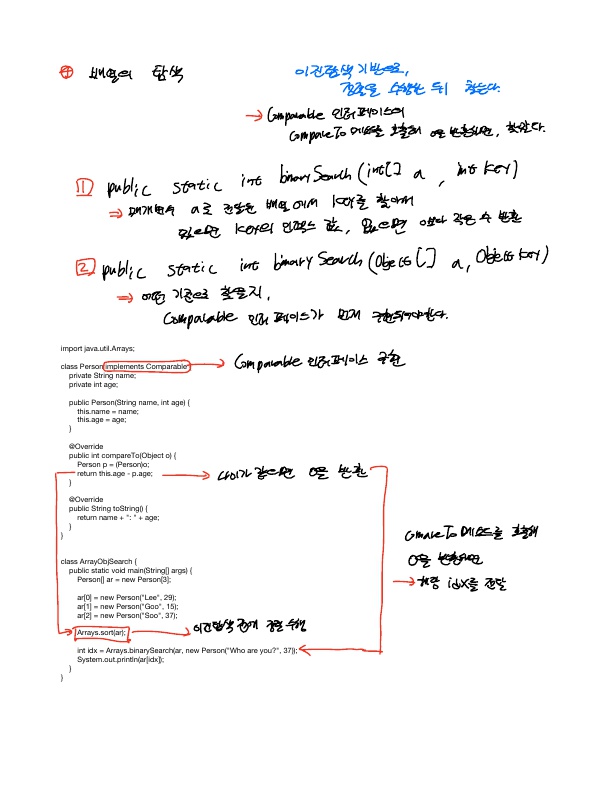 ④ 배열의 탐색
이진탐색 기반으로,
정렬을 수행한 뒤 찾는다.
→ Comparable 인터페이스의
CompareTo 메소드를 호출해 0을 반환하면, 찾았다.
1 public static int binarySearch(int[] a, int key)
⇒ 매개변수 a로 전달된 배열에서 key를 찾아서
있으면 key의 인덱스 값, 없으면 0보다 작은 수 반환
2 public static int binarySearch(Object[] a, Object key)
⇒ 어떤 기준으로 찾을지,
Comparable 인터페이스가 먼저 구현되어야한다.
import java.util.Arrays;
class Person implements Comparable → Comparable 인터페이스 구현
private String name;
private int age;
public Person(String name, int age) {
this.name = name;
this.age = age;
}
@Override
public int compareTo(Object o) {
Person p = (Person)o;
return this.age - p.age; → 나이가 같으면 0을 반환
}
@Override
public String toString() {
return name + ": " + age;
}
}
CompareTo 메소드를 호출해
0을 반환하면
→ 해당 idx를 전달
class ArrayObjSearch {
public static void main(String[] args) {
Person[] ar = new Person[3];
ar[0] = new Person("Lee", 29);
ar[1] = new Person("Goo", 15);
ar[2] = new Person("Soo", 37);
Arrays.sort(ar); → 이진탐색 전에 정렬 수행
int idx = Arrays.binarySearch(ar, new Person("Who are you?", 37));
System.out.println(ar[idx]);
}
}